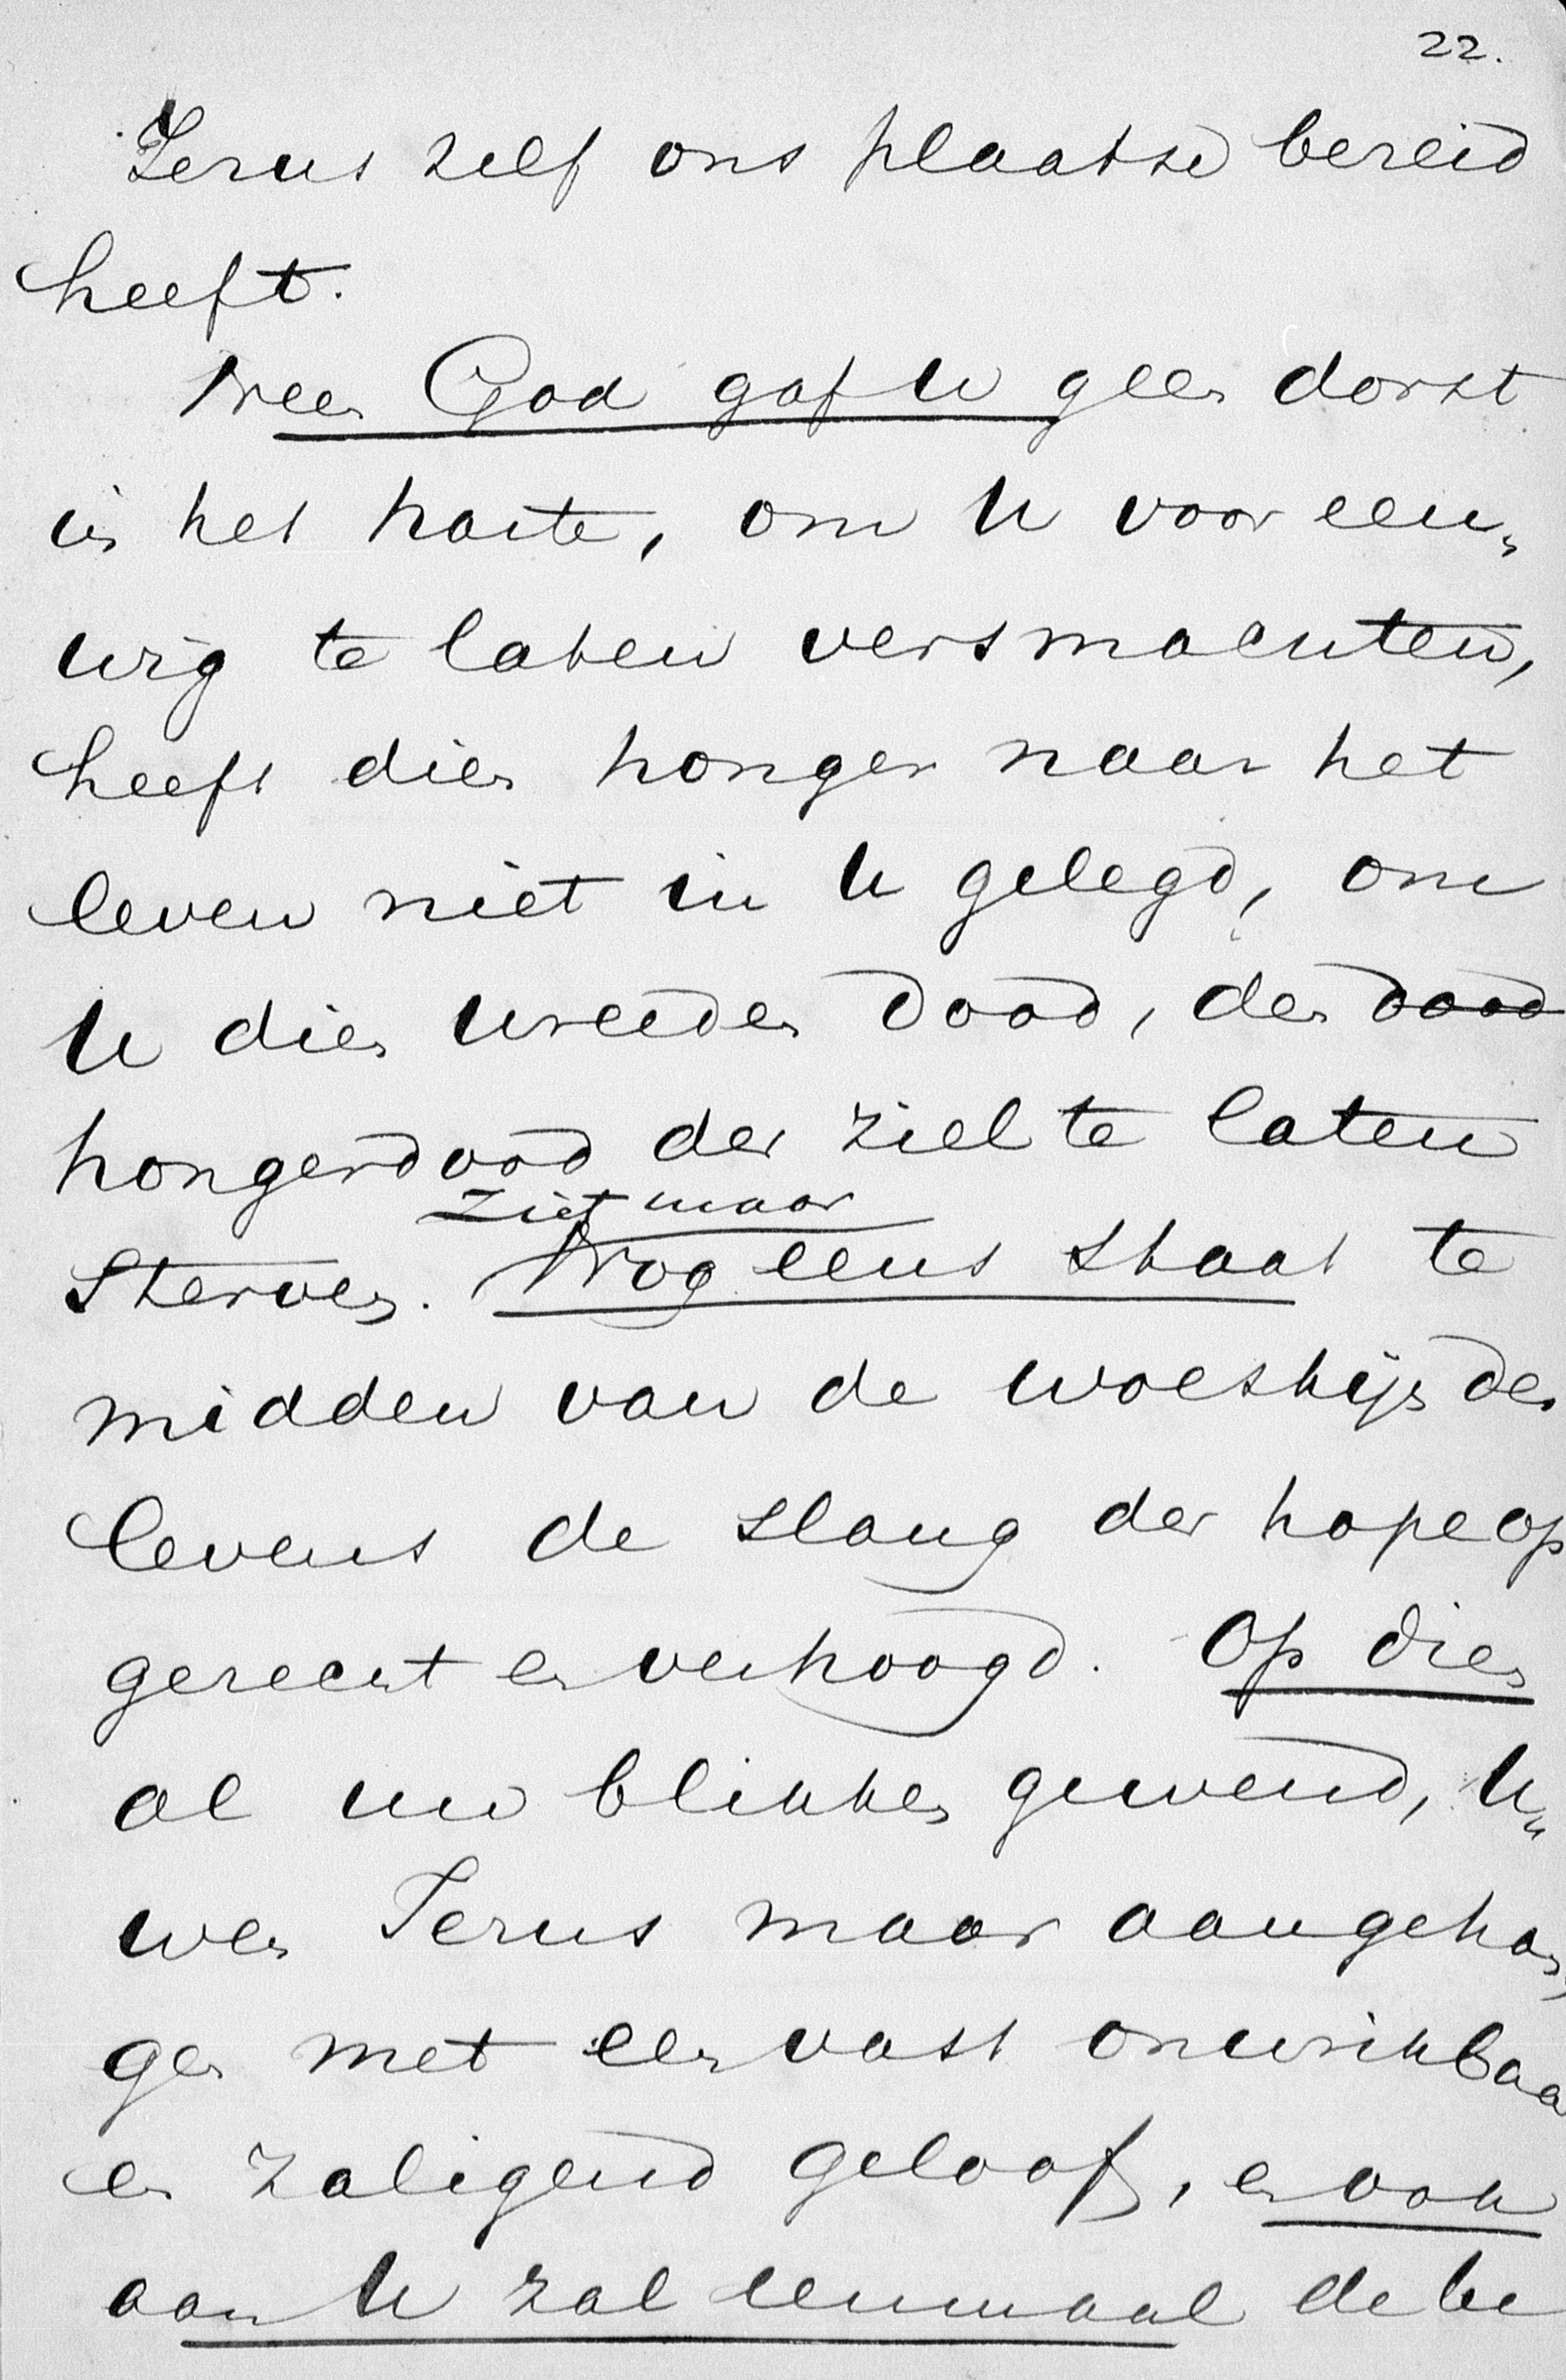 22.
Jezus zelf ons plaatse bereid
heeft.
Neen God gaf U geen dorst
in het harte, om U voor eeu„
wig te laten versmachten,
heeft dien honger naar het
leven niet in U gelegd, om
U dien wreeden dood, den dood
hongerdood der ziel te laten
Ziet maar
Sterven. Nog eens staat te
midden van de woestijn des
levens de slang der hope op
gerecht en verhoogd. Op dien
al uw blikken gewend, U„
wen Jezus maar aangehan„
gen met een vast onwrikbaa
en zaligend geloof, en ook
aan U zal eenmaal de be